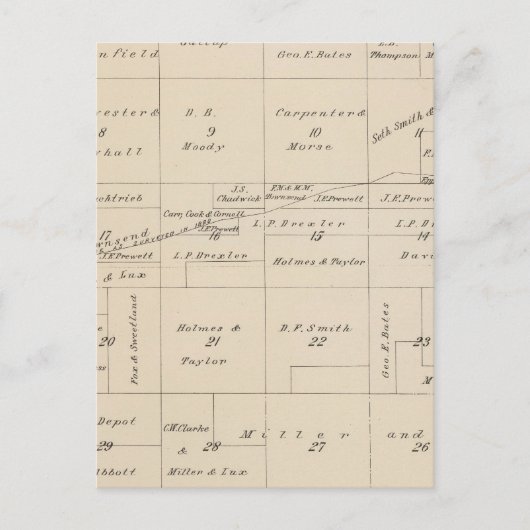 nfield
Gallup
Geo. E. Bates
Thompson
M
ester &
8
hall
D. B.
9
Moody
Carpenter &
10
Morse
Seth Smith &
11
chtrieb
J. S.
Chadwick
F.M. & M.M.
Townsend
J.E. Prewett
J.E. Prewett
Carr, Cook & Cornell
17
wnsend
AS SURVEYED IN 1880
J.E. Prewett
J.E. Prewett
16
L. P. Drexler
L. P. Drexler
15
Holmes & Taylor
L. P. D
14
Davi
& Lux
20
Fox & Sweetland
Holmes &
21
Taylor
D. F. Smith
22
Geo. E. Bates
23
M
Depot
29
bbott
C.W. Clarke
&
28
Miller & Lux
Miller and
27
26